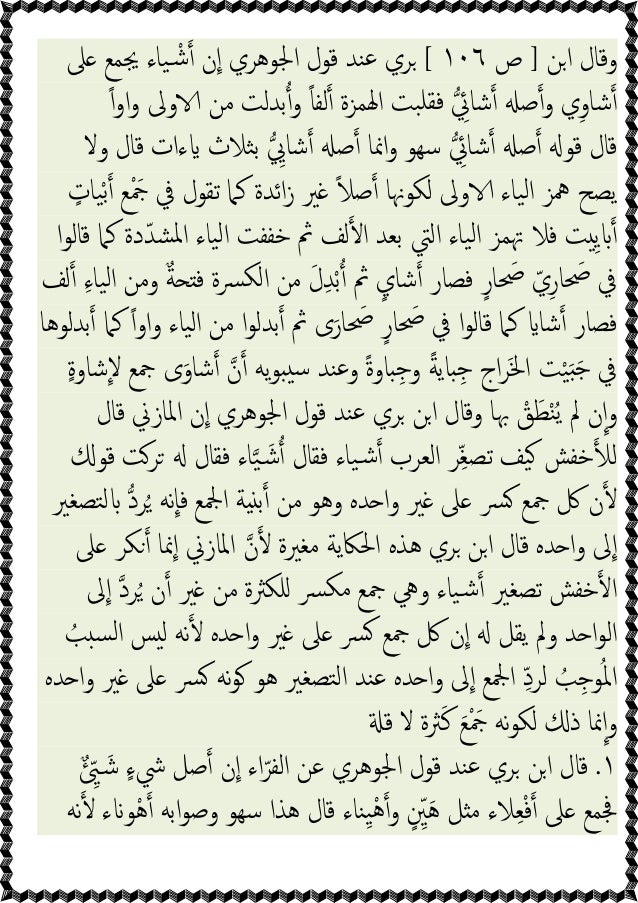 وقال ابن [ ص ١٠٦ ] بري عند قول الجوهري إن أَشْياء يجمع على
أَشاوِي وأَصله أَشائِيُّ فقلبت الهمزة أَلفاً وأُبدلت من الاولى واواً
قال قوله أَصله أَشائِيُّ سهو وانما أَصله أَشايِيُّ بثلاث ياءات قال ولا
يصح همز الياء الاولى لكونها أَصلاً غير زائدة كما تقول في جَمْع أَبْياتٍ
أَبايِيت فلا تهمز الياء التي بعد الأَلف ثم خففت الياء المشدّدة كما قالوا
في صَحارِيّ صَحارٍ فصار أَشايٍ ثم أُبْدِلَ من الكسرة فتحةٌ ومن الياءِ أَلف
فصار أَشايا كما قالوا في صَحارٍ صَحارَى ثم أَبدلوا من الياء واواً كما أَبدلوها
في جَبَيْت الخَراج جِبايةً وجِباوةً وعند سيبويه أَنَّ أَشاوَى جمع لإِشاوةٍ
وإِن لم يُنْطَقْ بها وقال ابن بري عند قول الجوهري إن المازني قال
للأَخفش كيف تصغِّر العرب أَشياء فقال أُشَيَّاء فقال له تركت قولك
لأَن كل جمع كسر على غير واحده وهو من أَبنية الجمع فإِنه يُردُّ بالتصغير
إِلى واحده قال ابن بري هذه الحكاية مغيرة لأَنَّ المازني إِنما أَنكر على
الأَخفش تصغير أَشياء وهي جمع مكسر للكثرة من غير أَن يُردَّ إِلى
الواحد ولم يقل له إِن كل جمع كسر على غير واحده لأَنه ليس السببُ
المُوجِبُ لردِّ الجمع إِلى واحده عند التصغير هو كونه كسر على غير واحده
وإِنما ذلك لكونه جَمْعَ كَثرة لا قلة
١. قال ابن بري عند قول الجوهري عن الفرّاء إِن أَصل شيءٍ شَيِّئٌ
فجمع على أَفْعِلاء مثل هَيِّنٍ وأَهْيِناء قال هذا سهو وصوابه أَهْوناء لأَنه